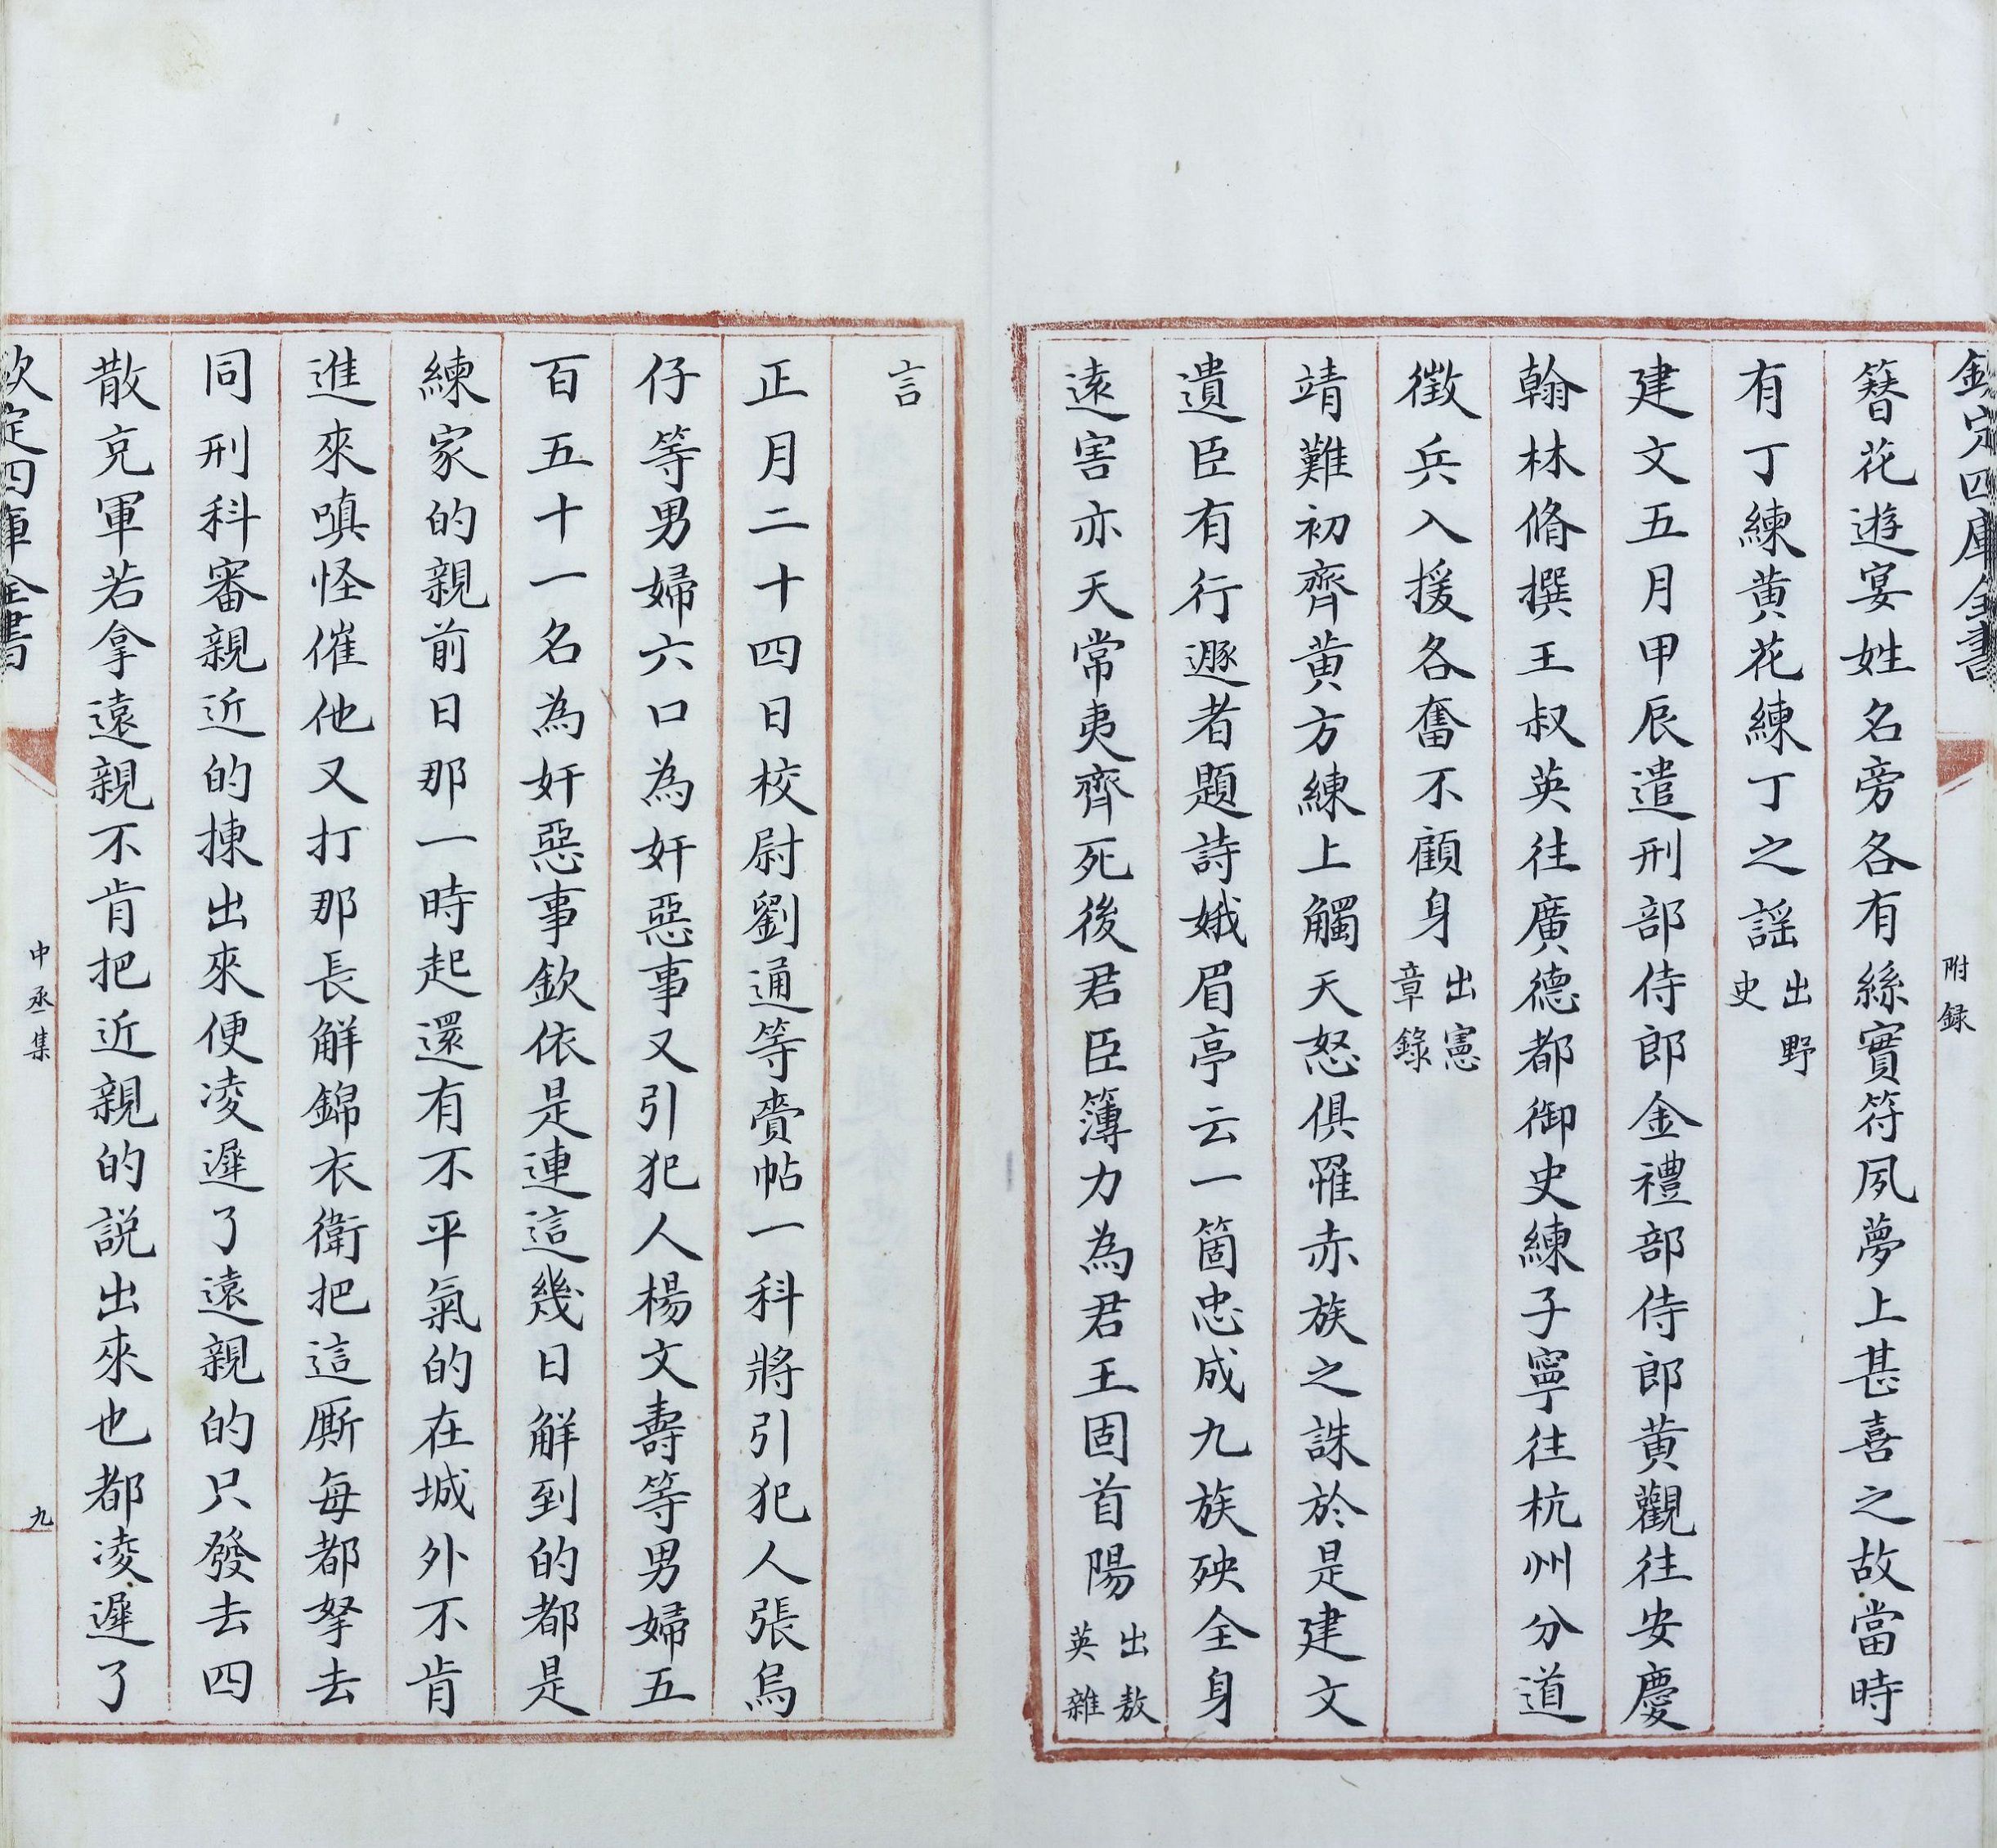 欽定四庫全書
附録
簪花遊宴姓名旁各有絲實符夙夢上甚喜之故當時
有丁練黄花練丁之謡出野史
建文五月甲辰遣刑部侍郎金禮部侍郎黄觀往安慶
翰林脩撰王叔英往廣德都御史練子寧往杭州分道
徵兵入援各奮不顧身出憲章錄
靖難初齊黄方練上觸天怒俱罹赤族之誅於是建文
遺臣有行遯者題詩娥眉亭云一箇忠成九族殃全身
遠害亦天常夷齊死後君臣簿力為君王固首陽出敖英雜
言
正月二十四日校尉劉通等賫帖一科將引犯人張烏
仔等男婦六口為奸惡事又引犯人楊文壽等男婦五
百五十一名為奸惡事欽依是連這幾日解到的都是
練家的親前日那一時起還有不平氣的在城外不肯
進來嗔怪催他又打那長解錦衣衛把這厮每都拏去
同刑科審親近的揀出來便凌遲了遠親的只發去四
散充軍若拿遠親不肯把近親的説出來也都凌遲了
欽定四庫全書
中丞集
九